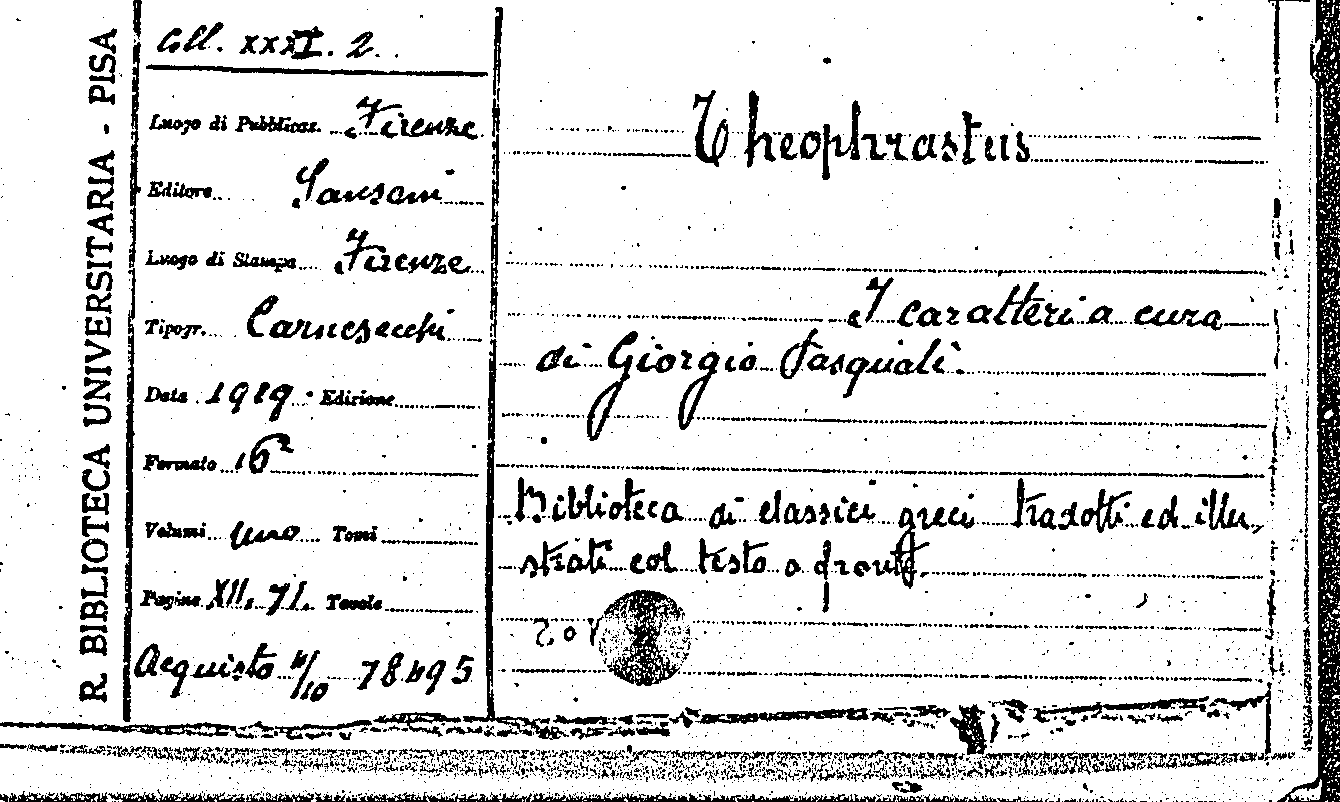 R. BIBLIOTECA UNIVERSITARIA - PISA
Coll. XXXI. 2.
Luogo di Pubblicaz. Firenze
Editore Sansoni
Luogo di Stampa Firenze
Tipogr. Carnesecchi
Data 1919 Edizione
Formato 16°
Volumi uno Tomi
Pagine XII, 71. Tavole
Acquisto 4/10 78495
Theophrastus
I caratteri a cura
di Giorgio Pasquali.
Biblioteca di classici greci tradotti ed illu-
strati col testo a fronte.